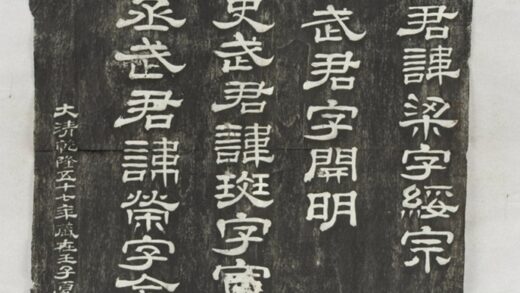 君諱梁字綏宗
武君字開明
史武君諱斑字宣
丞武君諱榮字含
大清乾隆五十七年歲在壬子